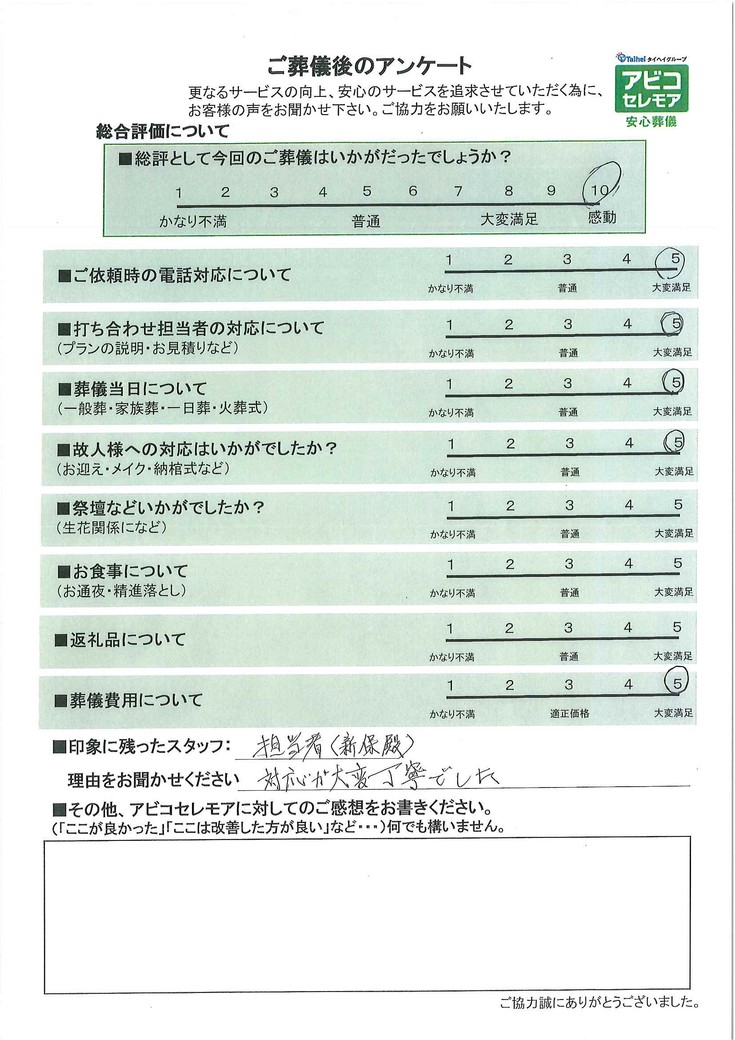 ご葬儀後のアンケート
Taihei タイヘイグループ
アビコ
セレモア
安心葬儀
更なるサービスの向上、安心のサービスを追求させていただく為に、
お客様の声をお聞かせ下さい。ご協力をお願いいたします。
総合評価について
■総評として今回のご葬儀はいかがだったでしょうか？
1 2 3 4 5 6 7 8 9 10
かなり不満 普通 大変満足 感動
■ご依頼時の電話対応について
1 2 3 4 5
かなり不満 普通 大変満足
■打ち合わせ担当者の対応について
(プランの説明・お見積りなど)
1 2 3 4 5
かなり不満 普通 大変満足
■葬儀当日について
(一般葬・家族葬・一日葬・火葬式)
1 2 3 4 5
かなり不満 普通 大変満足
■故人様への対応はいかがでしたか？
(お迎え・メイク・納棺式など)
1 2 3 4 5
かなり不満 普通 大変満足
■祭壇などいかがでしたか？
(生花関係になど)
1 2 3 4 5
かなり不満 普通 大変満足
■お食事について
(お通夜・精進落とし)
1 2 3 4 5
かなり不満 普通 大変満足
■返礼品について
1 2 3 4 5
かなり不満 普通 大変満足
■葬儀費用について
1 2 3 4 5
かなり不満 適正価格 大変満足
■印象に残ったスタッフ： 担当者(新保殿)
理由をお聞かせください 対応が大変丁寧でした
■その他、アビコセレモアに対してのご感想をお書きください。
(「ここが良かった」「ここは改善した方が良い」など・・・)何でも構いません。
ご協力誠にありがとうございました。